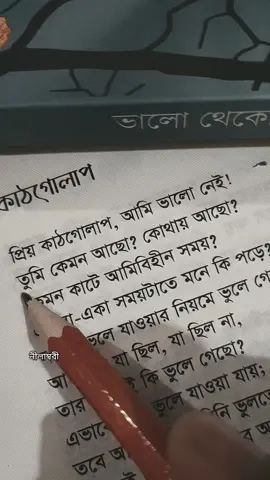 ভালো থেকো
কাঠগোলাপ
প্রিয় কাঠগোলাপ, আমি ভালো নেই!
তুমি কেমন আছো? কোথায় আছো?
কেমন কাটে আমিবিহীন সময়?
একা সময়টাতে মনে কি পড়ে?
ভুলে যাওয়ার নিয়মে ভুলে
যা ছিল, যা ছিল না,
কি ভুলে গেছো?
তার ভুলে যাওয়া যায়;
এভাবে ভুলতে
তবে
নীলাম্বরী